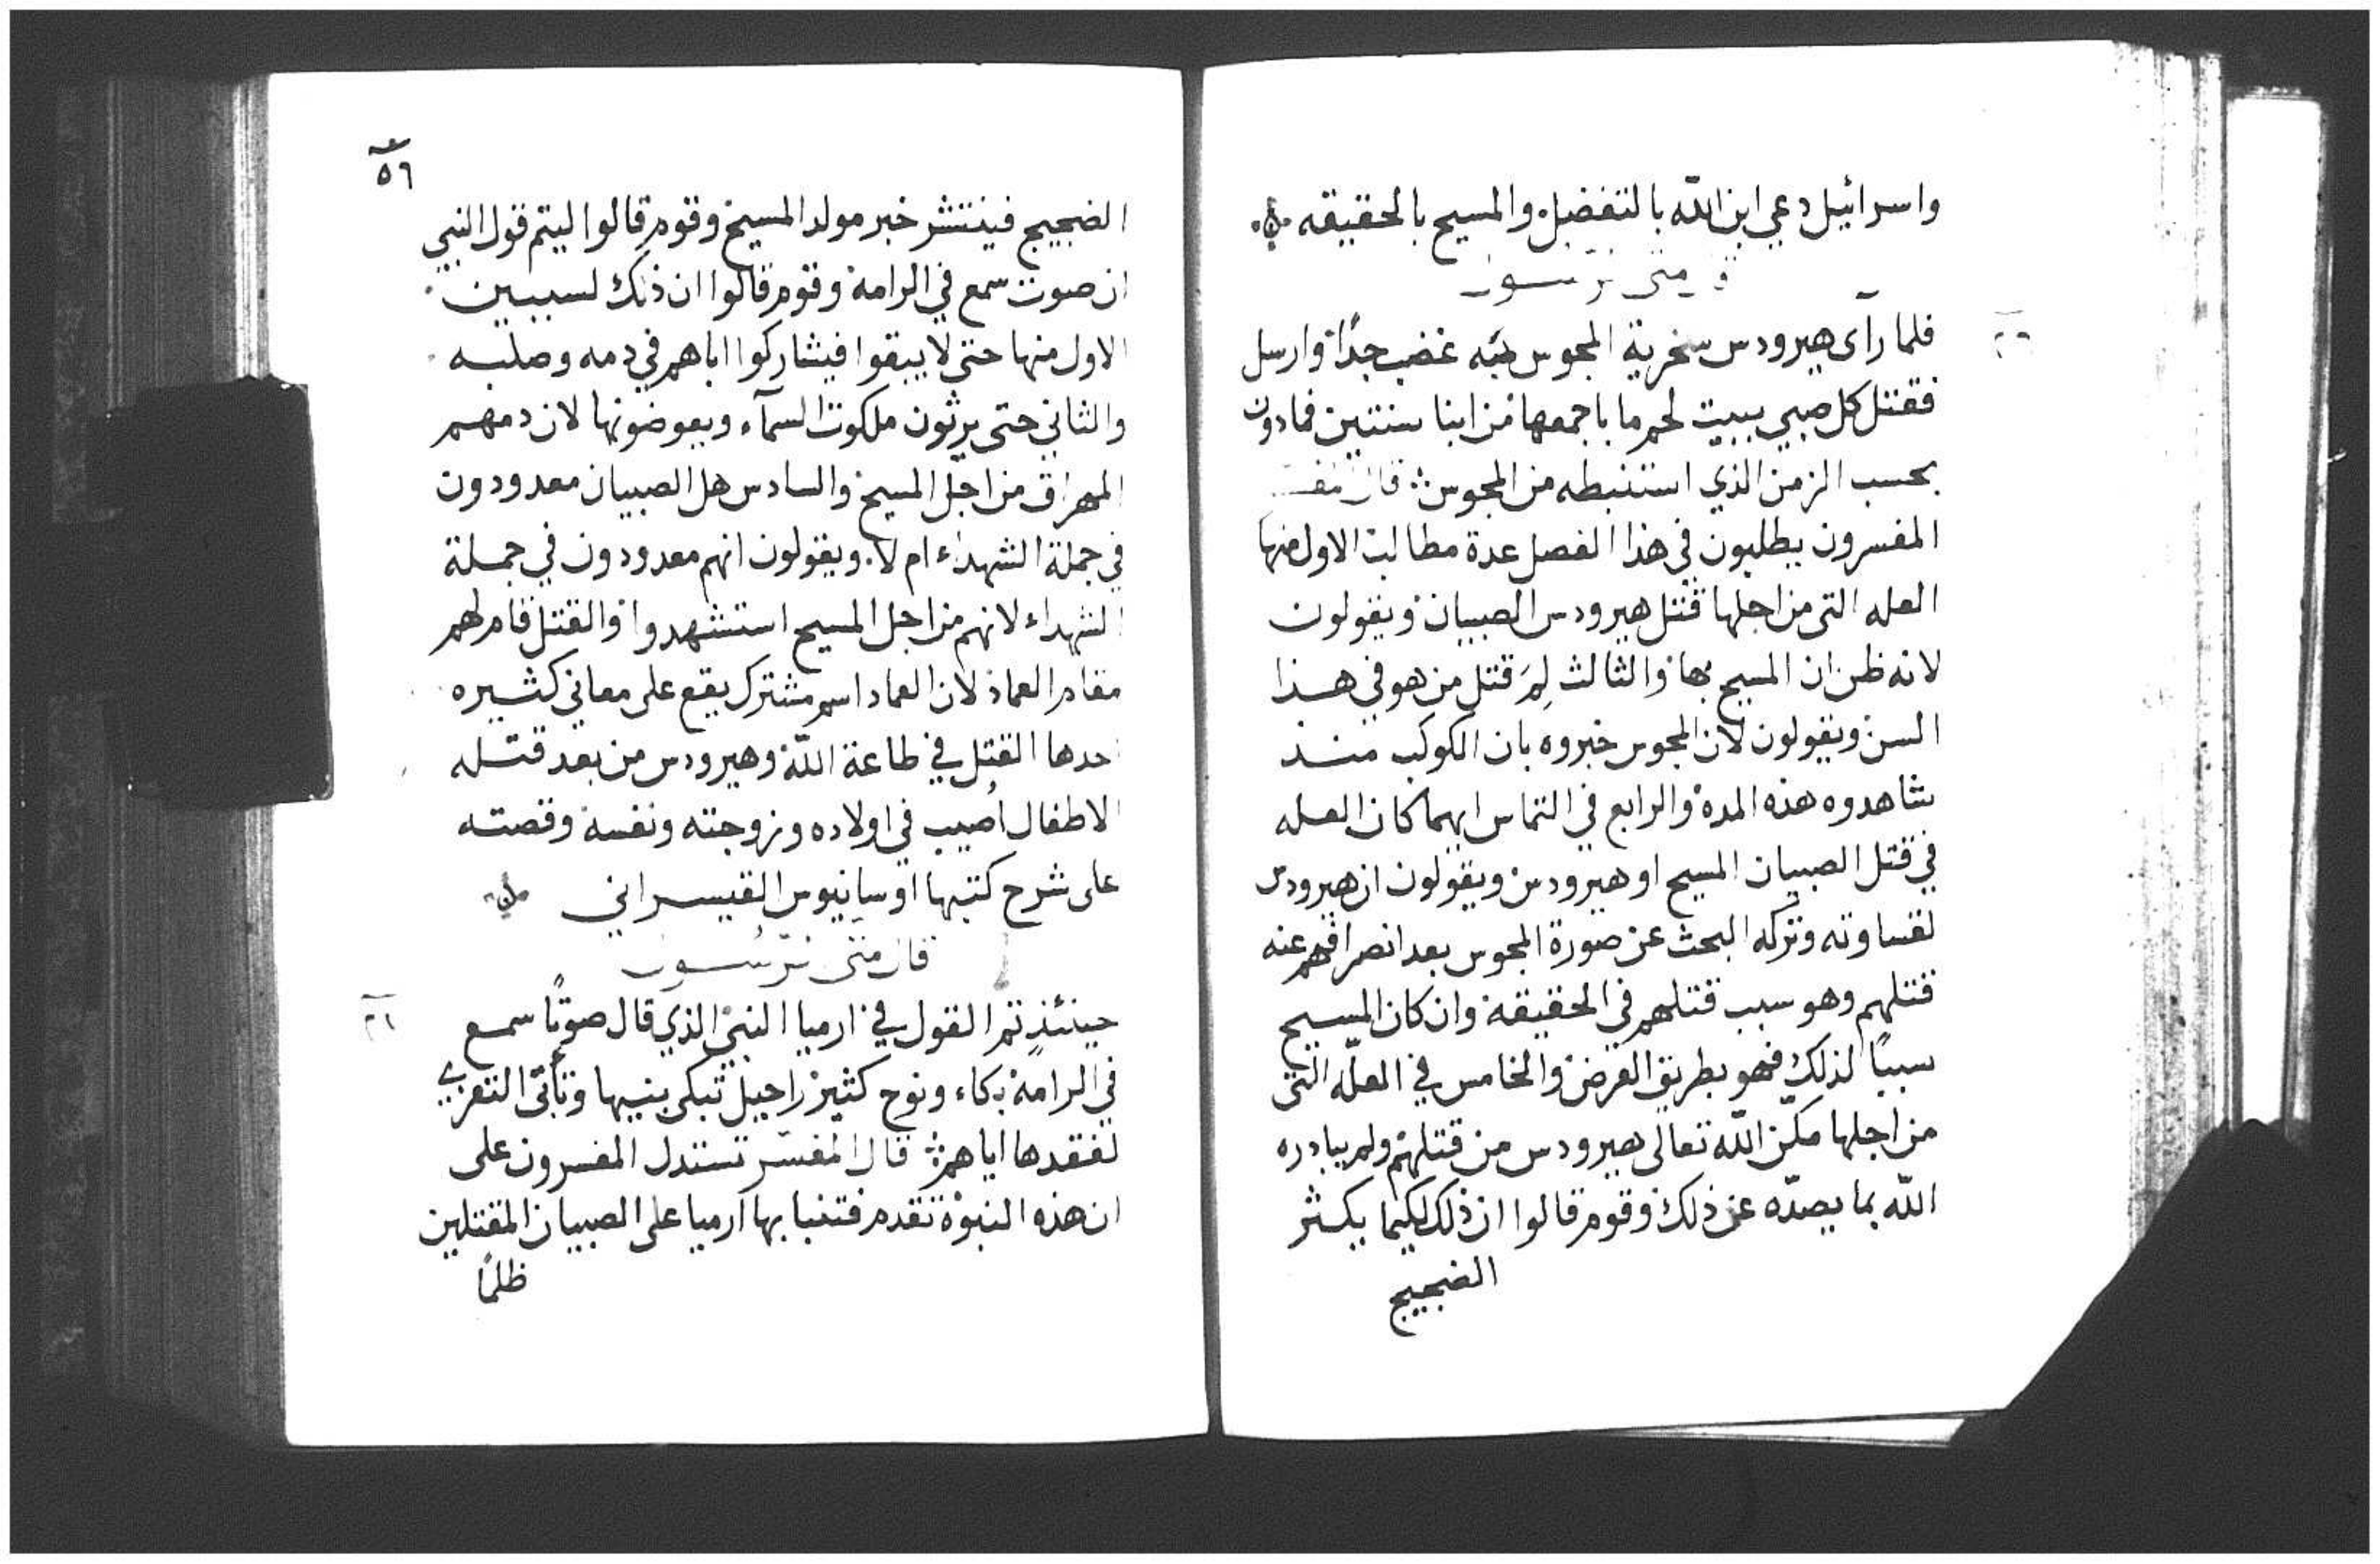 واسرائيل دعي ابن الله بالتفضل والمسيح بالحقيقه
متى الرسول
فلما رآى هيرودس سخرية المجوس به غضب جدًا وارسل
فقتل كل صبي ببيت لحم ما باجمعها من ابنا سنتين فما دون
بحسب الزمن الذي استنبطه من المجوس قال المفسر
المفسرون يطلبون في هذا الفصل عدة مطالب الاول منها
العله التى من اجلها قتل هيرودس الصبيان ويقولون
لانه ظن ان المسيح بها والثالث لِمَ قتل من هو في هذا
السن ويقولون لان المجوس خبروه بان الكوكب منذ
شاهدوه هذه المدة والرابع في التماس ايهما كان العله
في قتل الصبيان المسيح او هيرودس ويقولون ان هيرودس
لقساوته وتركه البحث عن صورة المجوس بعد انصرافهم عنه
قتلهم وهو سبب قتلهم في الحقيقة وان كان المسيح
سببًا لذلك فهو بطريق العرض والخامس في العلّه التى
من اجلها مكّن الله تعالى هيرودس من قتلهم ولم يبادره
الله بما يصدّه عن ذلك وقوم قالوا ان ذلك لكيما يكثر
الضجيج
٥٦
الضجيج فينتشر خبر مولد المسيح وقوم قالوا ليتم قول النبي
ان صوت سمع في الرامة وقوم قالوا ان ذلك لسببين
الاول منها حتى لا يبقوا فيشاركوا اباهم في دمه وصلبه
والثاني حتى يرثون ملكوت السمآء ويعوضونها لان دمهم
المهراق من اجل المسيح والسادس هل الصبيان معدودون
في جملة الشهداء ام لا. ويقولون انهم معدودون في جملة
الشهداء لانهم من اجل المسيح استشهدوا والقتل قام لهم
مقام العماد لان العماد اسم مشترك يقع على معاني كثيره
احدها القتل في طاعة الله وهيرودس من بعد قتله
الاطفال اُصيب في اولاده وزوجته ونفسه وقصته
على شرح كتبها اوسابيوس القيسراني
قال متى الرسول
٢٦
حينئذٍ تم القول في ارميا النبي الذي قال صوتًا سمع
في الرامة بكاء ونوح كثير راحيل تبكى بنيها وتأبى التعزي
لفقدها اياهم قال المفسّر تستدل المفسرون على
ان هذه النبوة تقدم فتنبا بها آرميا على الصبيان المقتلين
ظلمًا